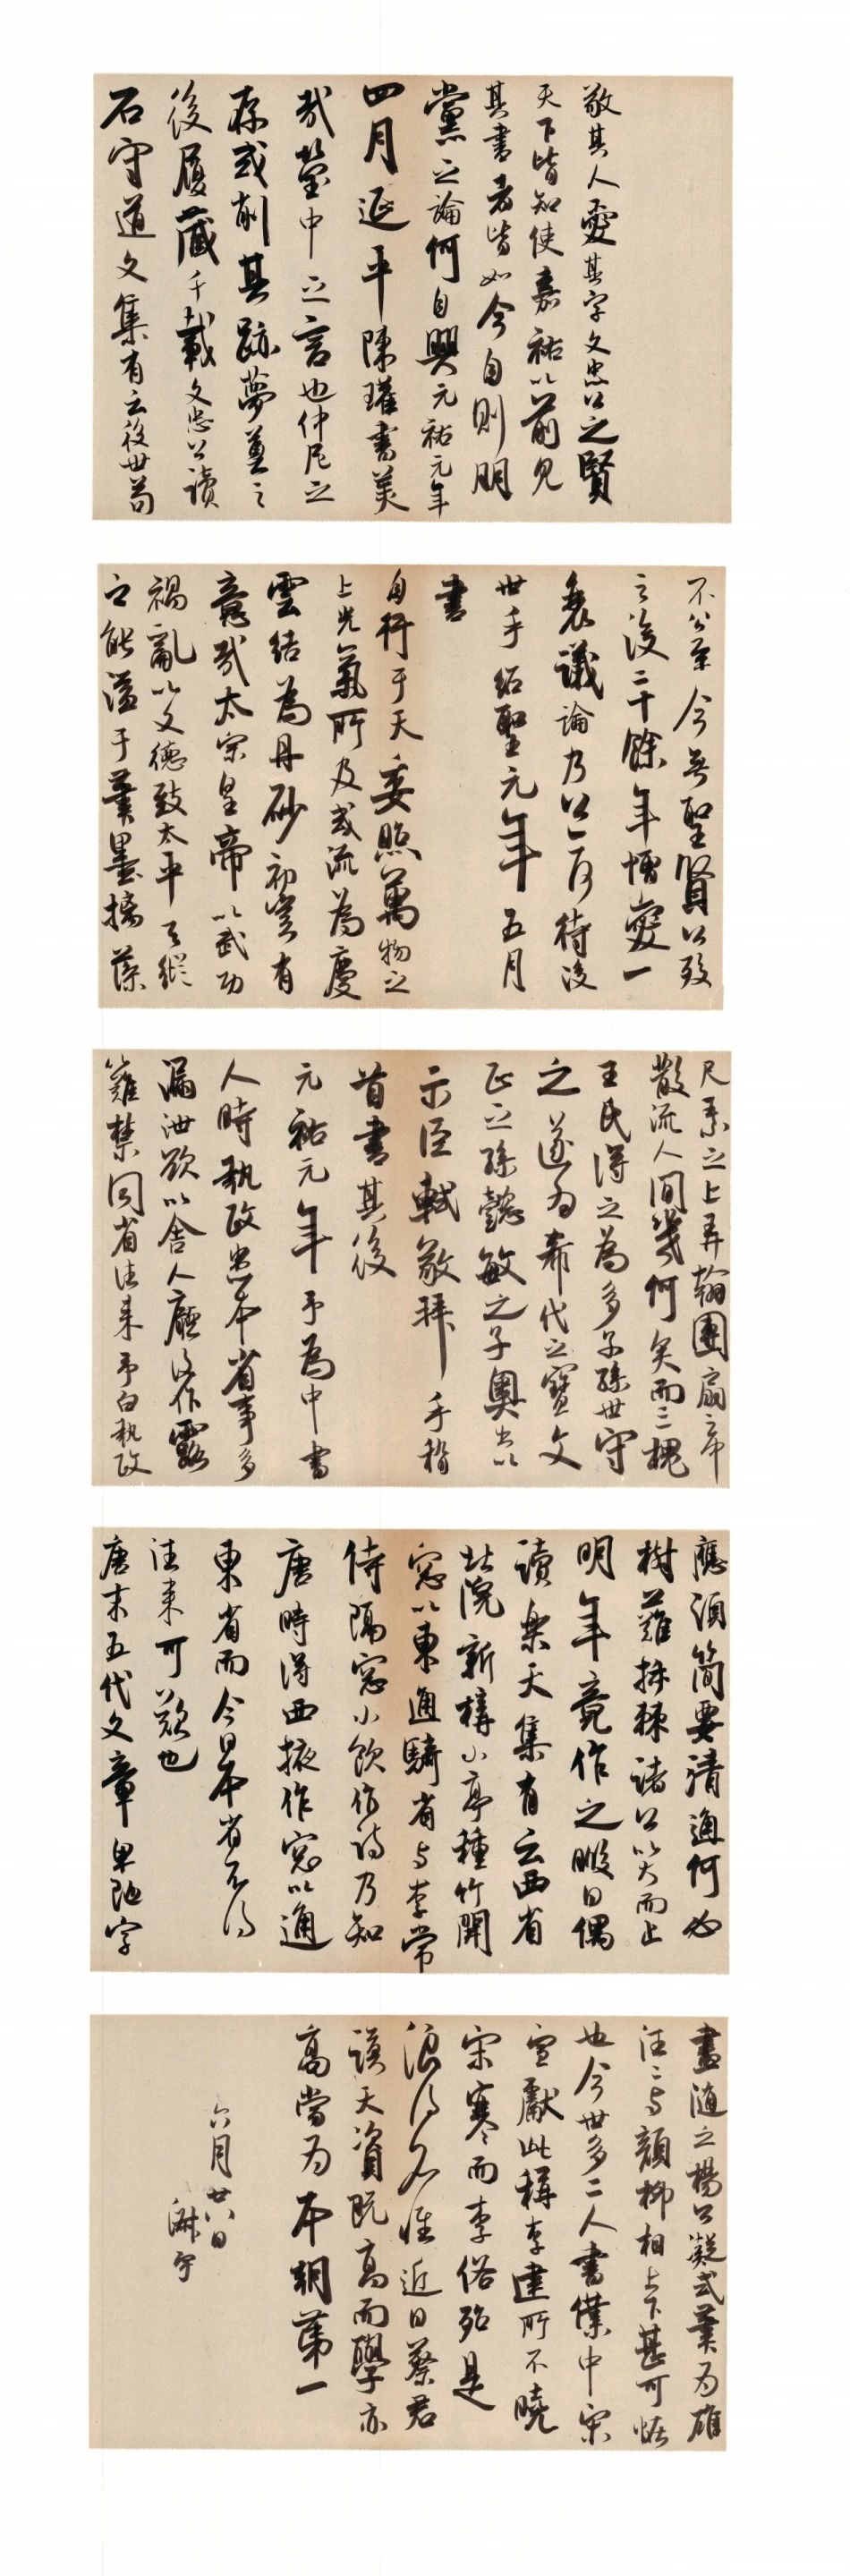 敬其人愛其字文忠公之賢
天下皆知使嘉祐以前見
其書者皆如今自則朋
黨之論何自興元祐元年
四月延平陳瓘書美
哉瑩中之言也仲尼之
存或削其跡夢奠之
後履藏千載文忠公讀
石守道文集有云後世苟
不公至今無聖賢公歿
之後二十餘年憎愛一
衰議論乃公亦何待後
世乎紹聖元年五月
書
自行于天委照萬物之
上光氣所及或流為慶
雲結為丹砂初豈有
意哉太宗皇帝以武功
禍亂以文德致太平天縱
之能溢于筆墨摛藻
尺素之上弄翰團扇之中
散流人間幾何矣而三槐
王氏得之為多子孫世守
之遂為希代之寶文
正之孫懿敏之子鞏出以
示臣軾敬拜手稽
首書其後
元祐元年予為中書
人時執政患本省事多
漏泄欲以舍人廳後作露
籬禁同省往來予白執政
應須簡要清通何必
樹籬插棘諸公笑而止
明年竟作之暇日偶
讀樂天集有云西省
北院新構小亭種竹開
窓以東通騎省與李常
侍隔窓小飲作詩乃知
唐時得西掖作窓以通
東省而今日本省不得
往來可歎也
唐末五代文章卑陋字
畫隨之楊公凝式筆為雄
往往與顏柳相上下甚可怪
也今世多二人書僕中宋
宣獻此稱李建所不曉
宋寒而李俗殆是
浪得名惟近日蔡君
謨天資既高而學亦
高當為本朝第一
六月廿八日